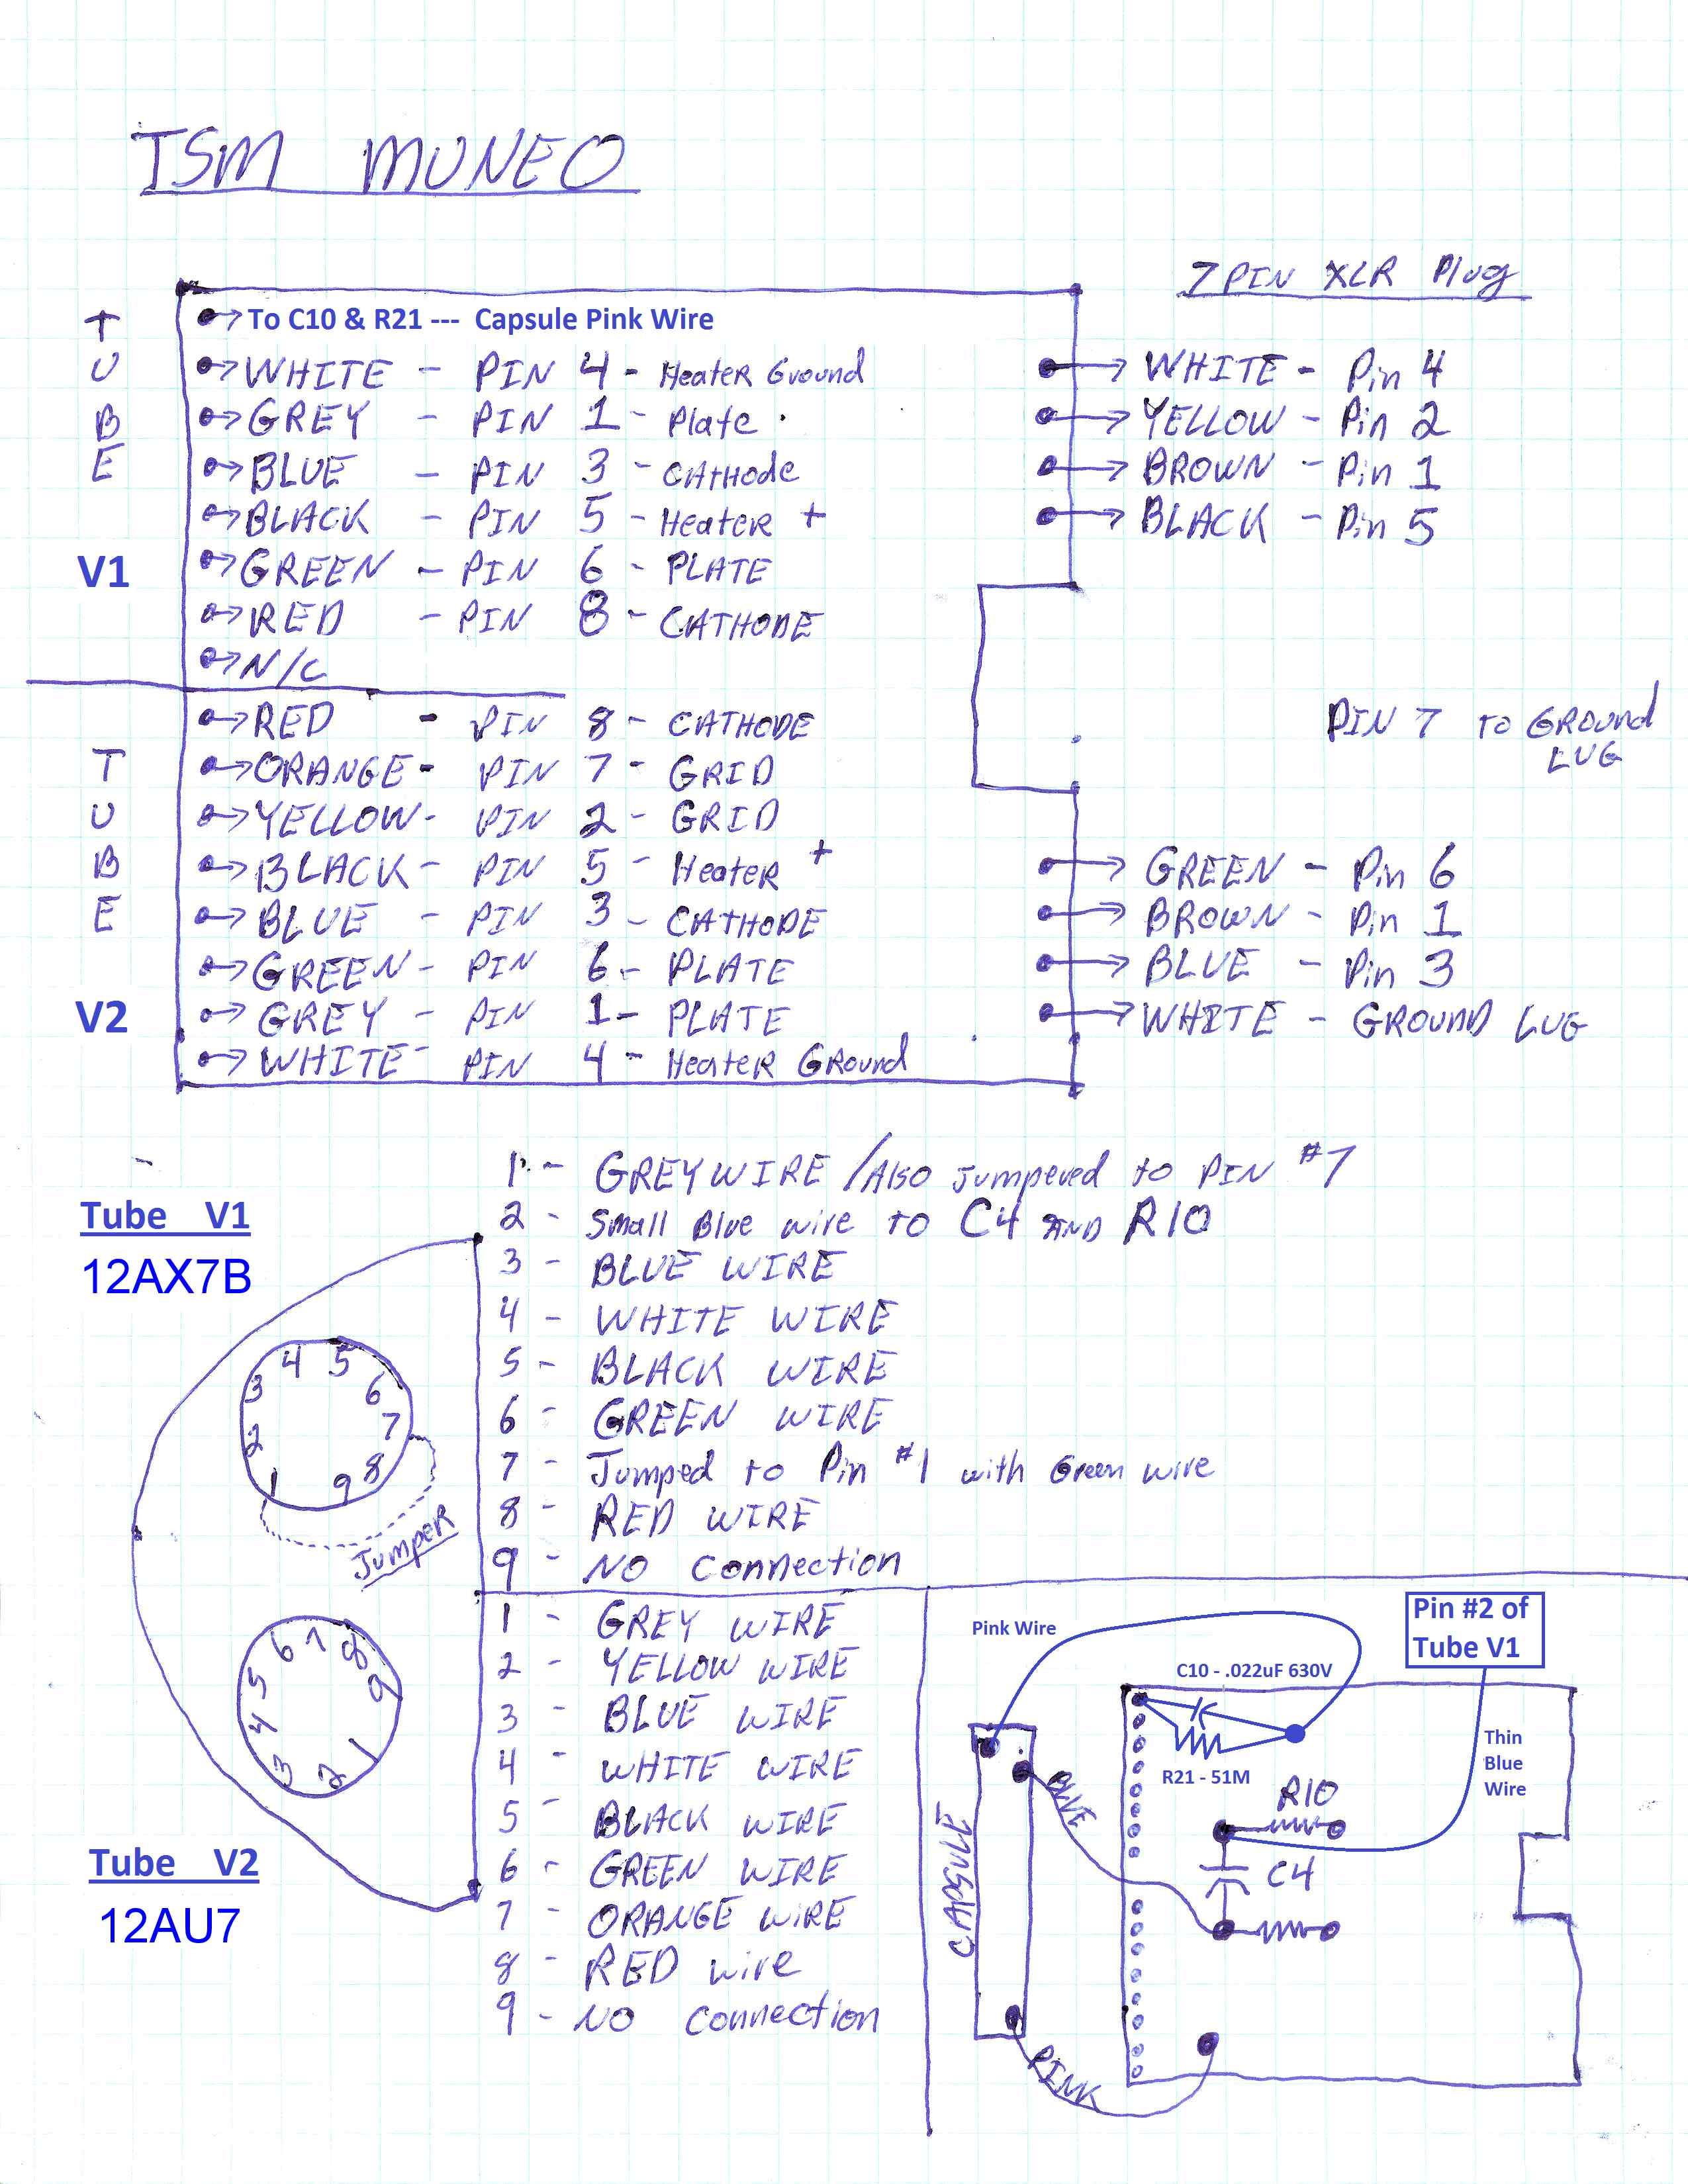 TSM MUNEO
7 PIN XLR Plug
TUBE
V1
To C10 & R21 --- Capsule Pink Wire
WHITE - PIN 4 - Heater Ground
GREY - PIN 1 - Plate
BLUE - PIN 3 - CATHode
BLACK - PIN 5 - Heater +
GREEN - PIN 6 - PLATE
RED - PIN 8 - CATHODE
N/C
WHITE - Pin 4
YELLOW - Pin 2
BROWN - Pin 1
BLACK - Pin 5
PIN 7 to GROUND
LUG
TUBE
V2
RED - PIN 8 - CATHODE
ORANGE - PIN 7 - GRID
YELLOW - PIN 2 - GRID
BLACK - PIN 5 - Heater +
BLUE - PIN 3 - CATHODE
GREEN - PIN 6 - PLATE
GREY - PIN 1 - PLATE
WHITE - PIN 4 - Heater Ground
GREEN - Pin 6
BROWN - Pin 1
BLUE - Pin 3
WHITE - GROUND LUG
Tube V1
12AX7B
1 2 3 4 5 6 7 8 9
Jumper
1 - GREY WIRE / Also Jumpered to PIN #7
2 - Small Blue wire to C4 AND R10
3 - BLUE WIRE
4 - WHITE WIRE
5 - BLACK WIRE
6 - GREEN WIRE
7 - Jumped to Pin #1 with Green wire
8 - RED WIRE
9 - NO Connection
1 2 3 4 5 6 7 8 9
Tube V2
12AU7
1 - GREY WIRE
2 - YELLOW WIRE
3 - BLUE WIRE
4 - WHITE WIRE
5 - BLACK WIRE
6 - GREEN WIRE
7 - ORANGE WIRE
8 - RED wire
9 - NO Connection
Pink Wire
Pin #2 of
Tube V1
C10 - .022uF 630V
R21 - 51M
Thin
Blue
Wire
R10
C4
BLUE
CAPSULE
PINK